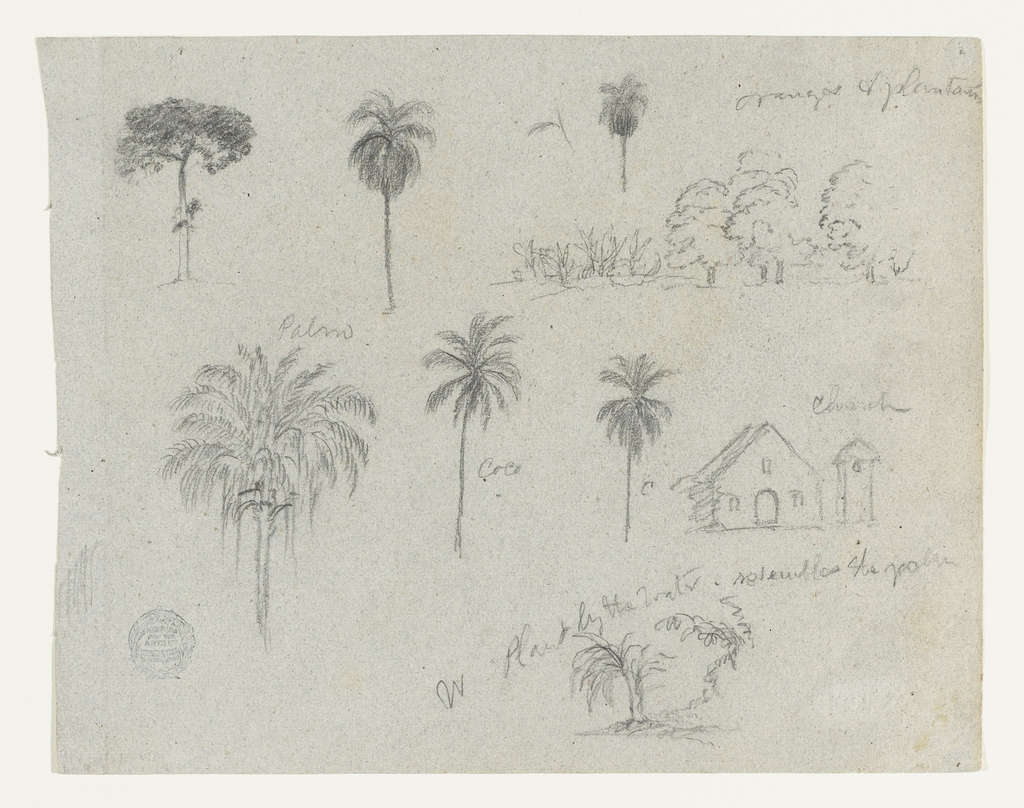 oranges & plantain
Palm
Coco
C
Church
Plant by the water. resembles the palm
W